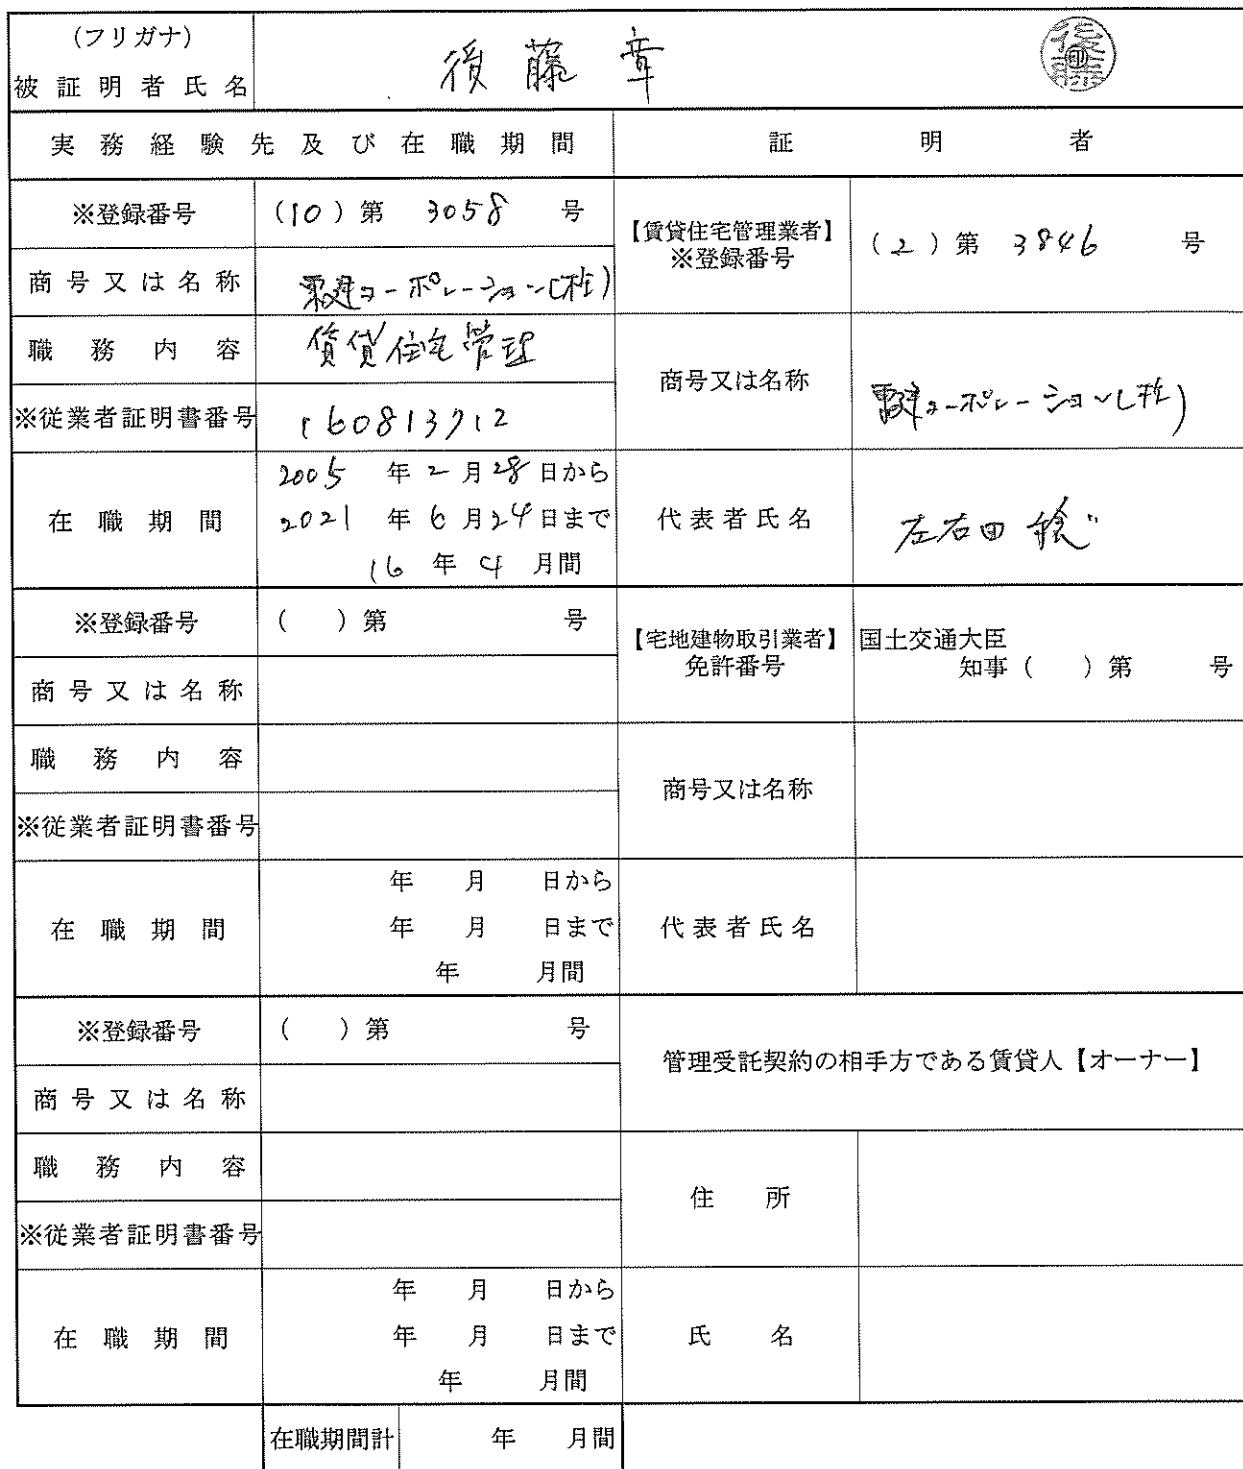 (フリガナ)
被証明者氏名
後藤 章
後藤
実務経験先及び在職期間
証明者
※登録番号
(10)第 3058 号
【賃貸住宅管理業者】
※登録番号
(2)第 3846 号
商号又は名称
コーポレーション(株)
職務内容
賃貸住宅管理
商号又は名称
コーポレーション(株)
※従業者証明書番号
160813712
在職期間
2005 年 2 月 28 日から
2021 年 6 月 24 日まで
16 年 4 月間
代表者氏名
左右田
※登録番号
( )第 号
【宅地建物取引業者】
免許番号
国土交通大臣
知事( )第 号
商号又は名称
職務内容
商号又は名称
※従業者証明書番号
在職期間
年 月 日から
年 月 日まで
年 月間
代表者氏名
※登録番号
( )第 号
管理受託契約の相手方である賃貸人【オーナー】
商号又は名称
職務内容
住所
※従業者証明書番号
在職期間
年 月 日から
年 月 日まで
年 月間
氏名
在職期間計
年 月間